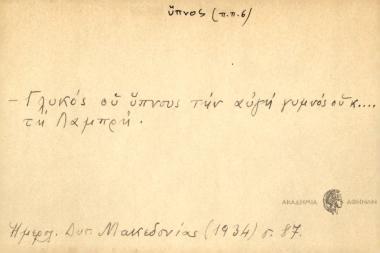 ὕπνος (π.π.6)
– Γλυκός οὑ ὕπνους τὴν αὐγή γυμνός οὑ κ....
τὴ Λαμπρή.
ΑΚΑΔΗΜΙΑ ΑΘΗΝΩΝ
Ἡμερολ. Δυτ. Μακεδονίας (1934) σ. 87.